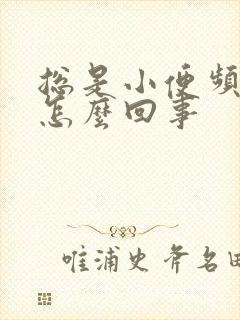 总是小便频
怎麼回事
唯浦史斧名田